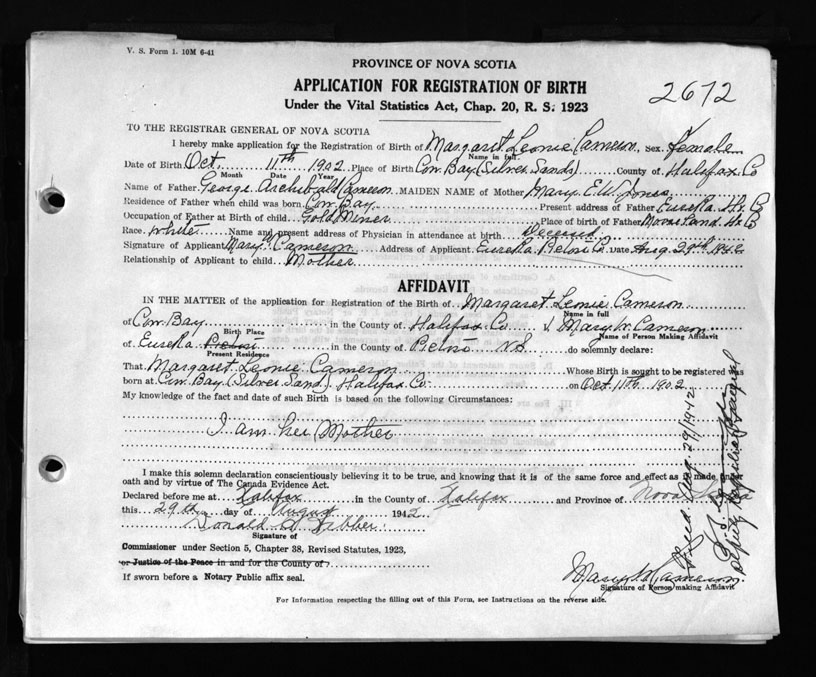 V. S. Form 1. 10M 6-41
PROVINCE OF NOVA SCOTIA
APPLICATION FOR REGISTRATION OF BIRTH
2672
Under the Vital Statistics Act, Chap. 20, R. S. 1923
TO THE REGISTRAR GENERAL OF NOVA SCOTIA
I hereby make application for the Registration of Birth of Margaret Leonie Cameron Sex Female
Name in full
Date of Birth Oct. 11th 1902 Place of Birth Cow Bay (Silver Sands) County of Halifax Co
Month Date Year
Name of Father George Archibald Cameron MAIDEN NAME of Mother Mary E.W. Jones
Residence of Father when child was born Cow Bay Present address of Father Eureka
Occupation of Father at Birth of child Gold Miner Place of Birth of Father
Race white Name and present address of Physician in attendance at birth Deceased
Signature of Applicant Mary Cameron Address of Applicant Eureka Pictou Co. Date Aug 29th
Relationship of Applicant to child Mother
AFFIDAVIT
IN THE MATTER of the application for Registration of the Birth of Margaret Leonie Cameron
Name in full
of Cow Bay in the County of Halifax Co I, Mary W. Cameron
Birth Place Name of Person Making Affidavit
of Eureka Pictou in the County of Pictou NS do solemnly declare:
Present Residence
That Margaret Leonie Cameron Whose Birth is sought to be registered was
born at Cow Bay (Silver Sand) Halifax Co. on Oct 11th 1902
My knowledge of the fact and date of such Birth is based on the following Circumstances:
I am her Mother
I make this solemn declaration conscientiously believing it to be true, and knowing that it is of the same force and effect as if made under
oath and by virtue of The Canada Evidence Act.
Declared before me at Halifax in the County of Halifax and Province of Nova Scotia
this 29th day of August 1942
Donald
Signature of
Commissioner under Section 5, Chapter 38, Revised Statutes, 1923,
or Justice of the Peace in and for the County of
If sworn before a Notary Public affix seal.
Mary W Cameron.
Signature of Person making Affidavit
For Information respecting the filling out of this Form, see Instructions on the reverse side.
Filed Aug. 29/1942
Deputy Registrar General